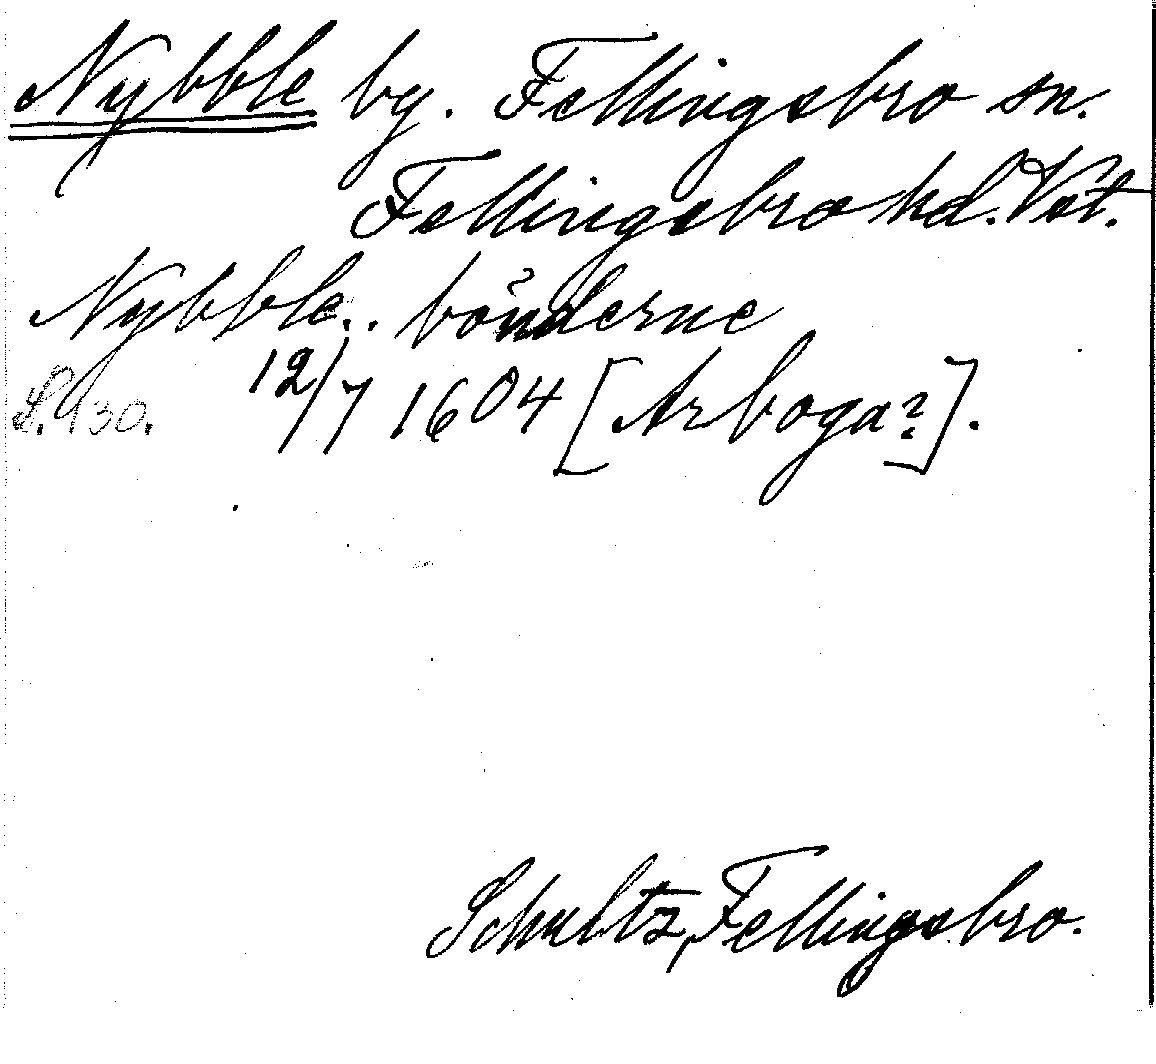 Nybble by. Fellingsbro sn.
Fellingsbro hd. Vstm.
Nybble.. bönderne
S. 130. 12/7 1604 [Arboga?].
Schultz, Fellingsbro.